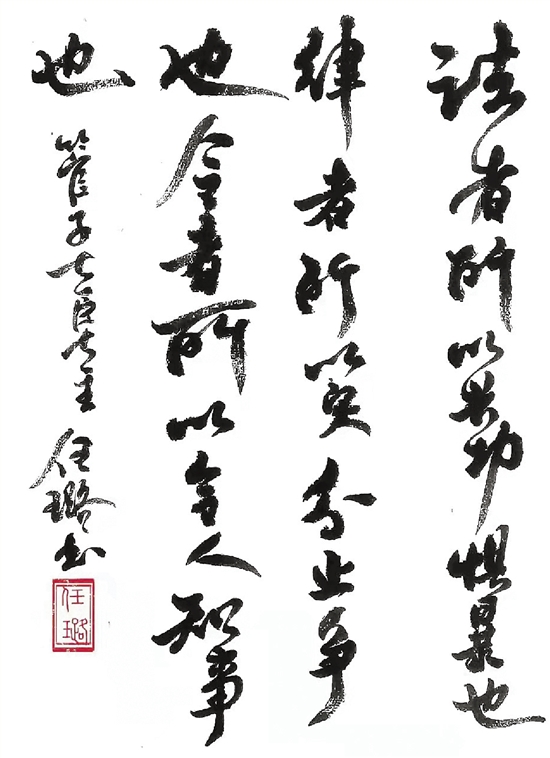 法者所以兴功惧暴也
律者所以定分止争
也令者所以令人知事
也
管子七臣七主 任璐书
任璐